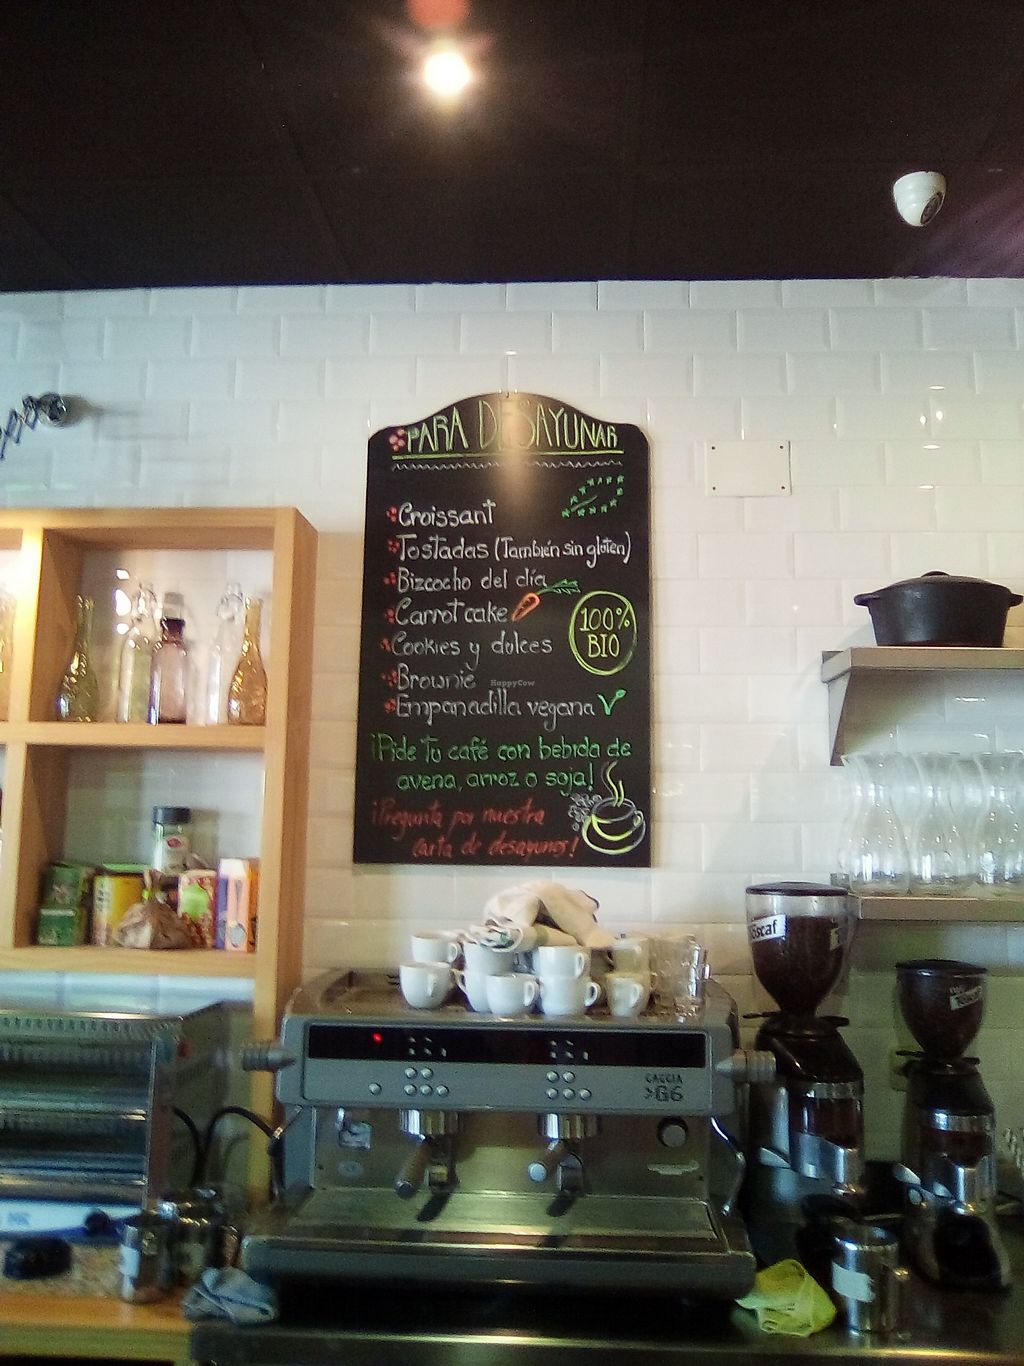 PARA DESAYUNAR
Croissant
Tostadas (También sin gluten)
Bizcocho del día
Carrot cake
100%
BIO
Cookies y dulces
Brownie
HappyCow
Empanadilla vegana
¡Pide tu café con bebida de
avena, arroz o soja!
¡Pregunta por nuestra
carta de desayunos!
GAGGIA
>G6